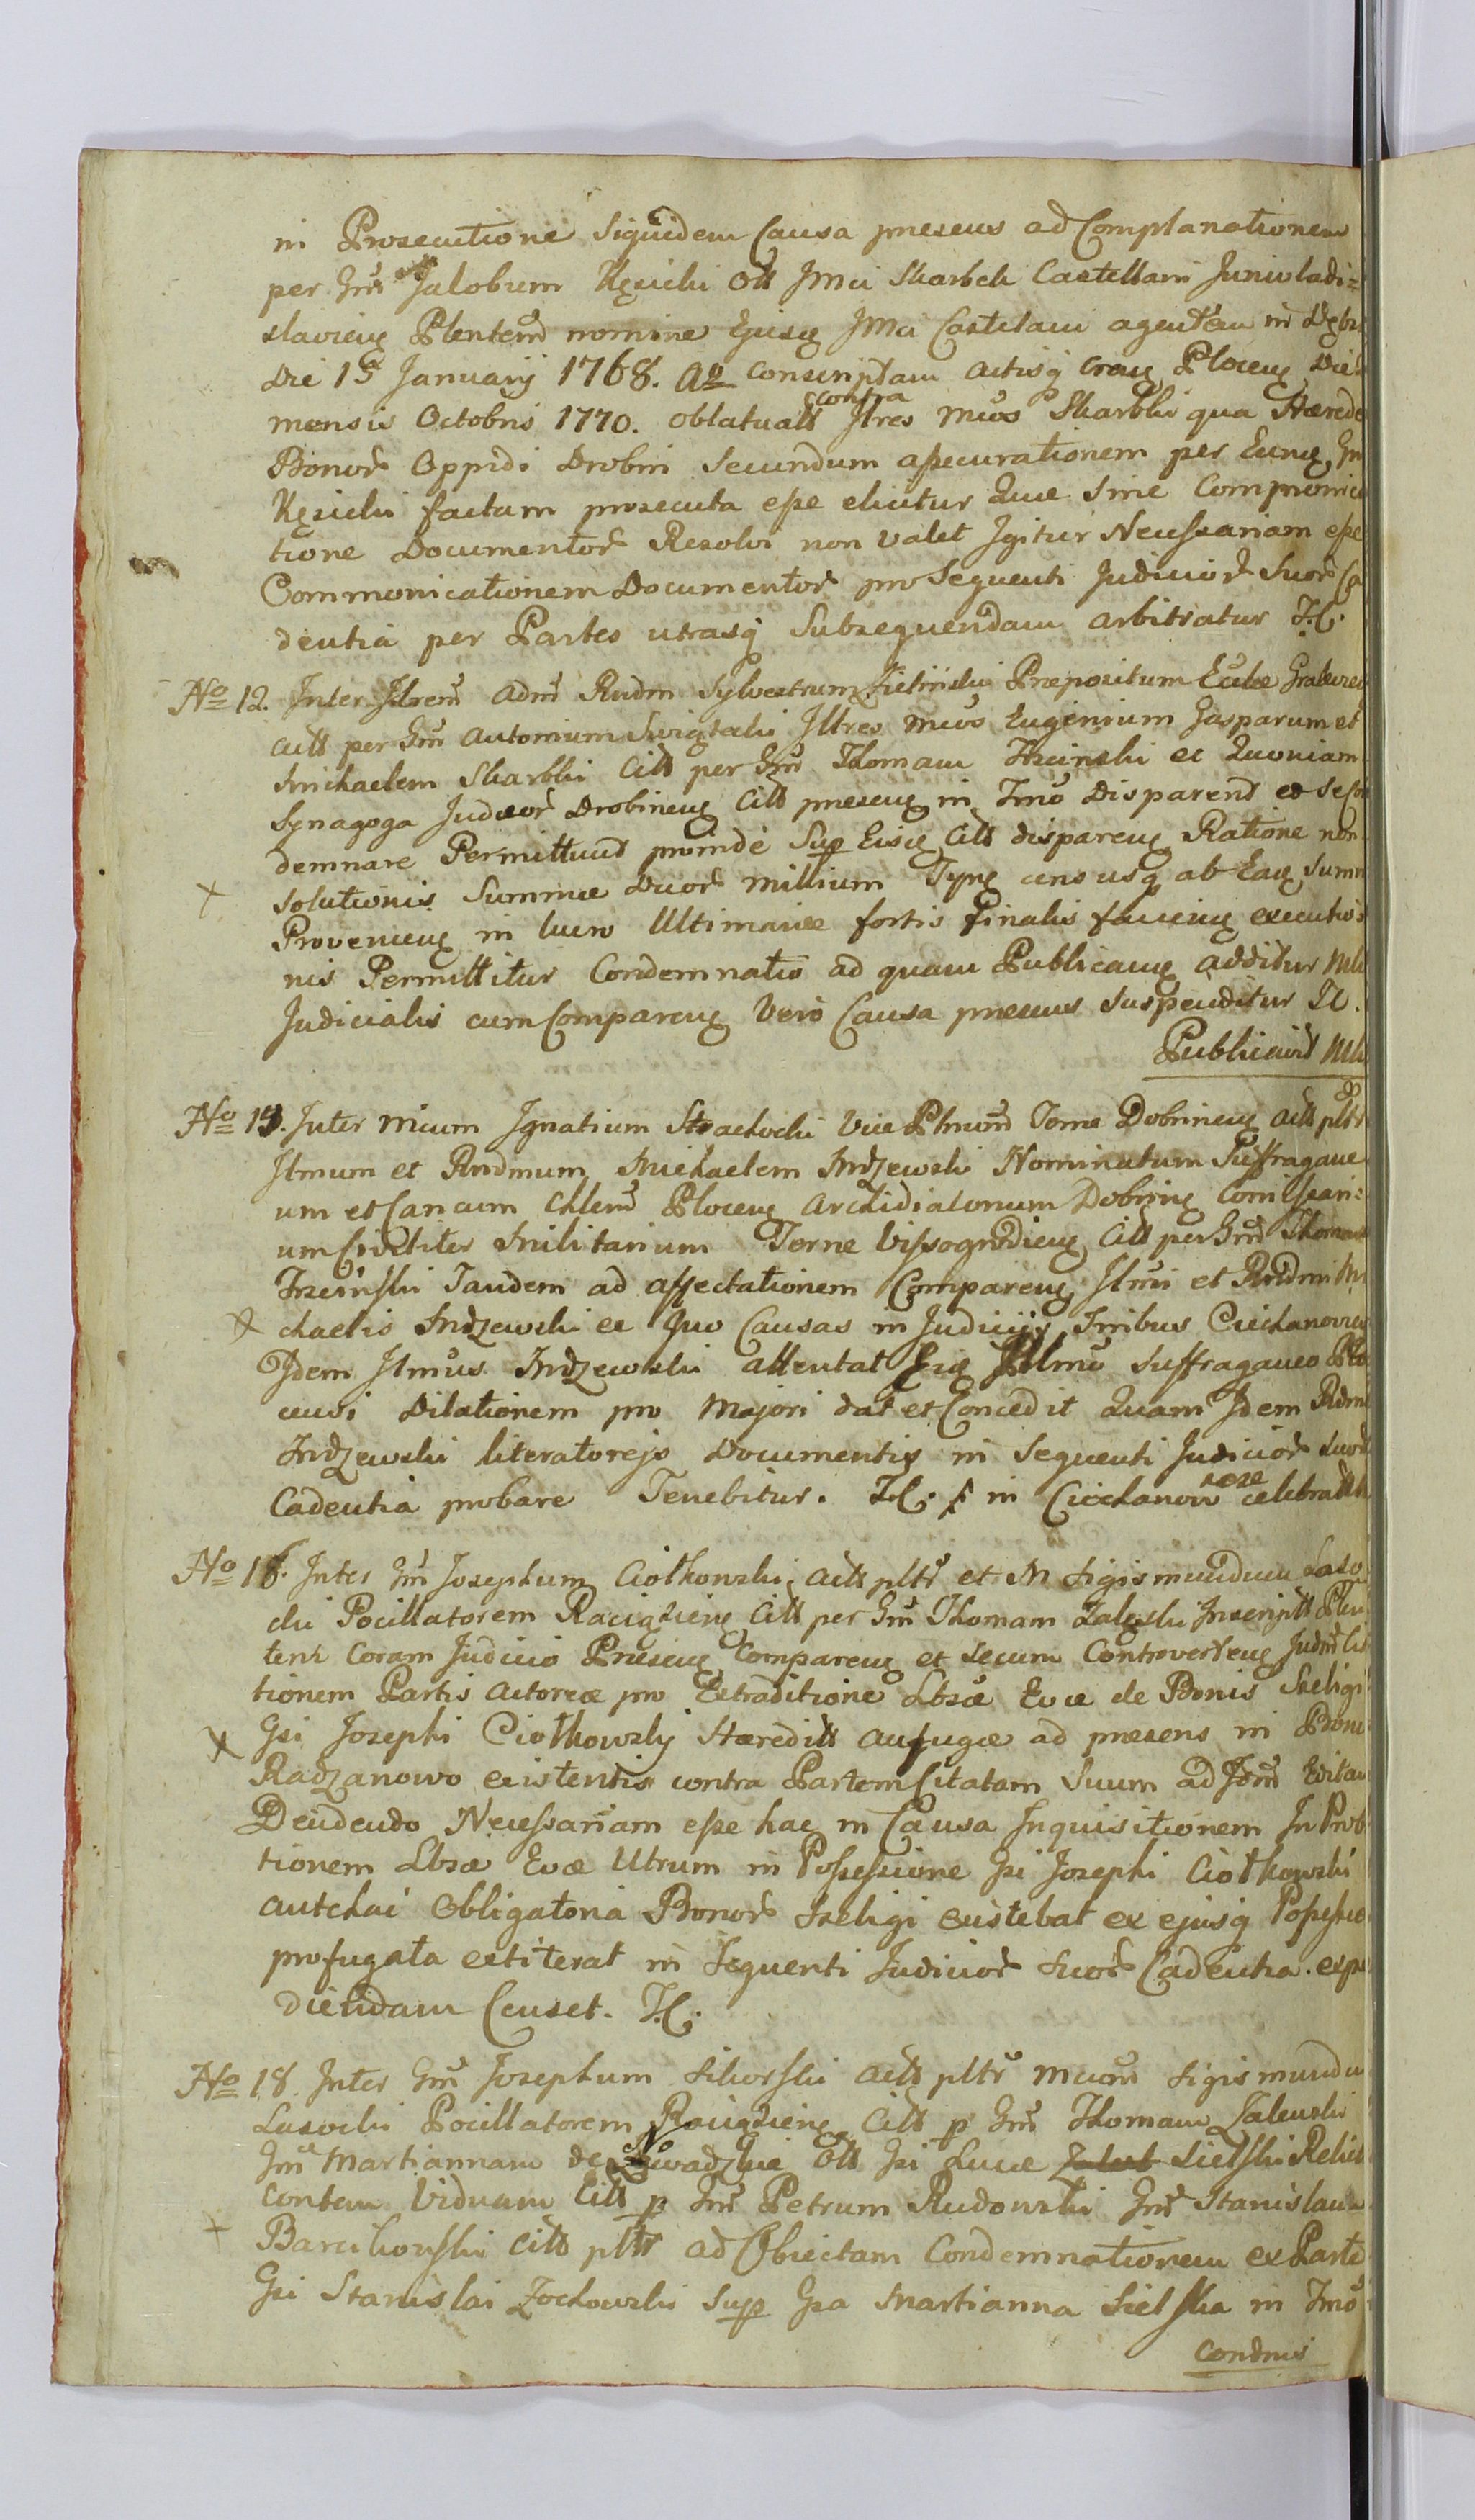 in Prosecutione Siquidem Causa presens ad Complanationem
per Gm Jakobum Kęsicki Olt Jmci Skarbek Castellani Juniwladi=
slaviens Plentem nomine Ejusq Jmci Castelani agentem in
Die 1a Januarij 1768. Ao Conscriptam actisq Crens Plocens Die
mensis Octobris 1770. oblatuatt contra Iltres mcos Skarbki qua Hærede
Bonor Oppidi Drobin Secundum assecurationem per Eunq Gm
Kęsicki factam prosecuta esse elicitur Quæ Sine Commonica
tione Documentor Resolvi non valet Igitur Necessariam esse
Commonicationem Documentor pro Sequenti Judicior Suor Ca
dentia per Partes utrasq Subsequendam arbitratur T.C.
No 12. Inter Iltrem admm Rndm Sylvestrum Zieliński Præpositum Eccle
actt per Gm Antonium Iltres mcos Eugenium Gasparum et
Michaelem Skarbki Citt per Gm Thomam Trzcinski ex Quoniam
Synagoga Judæor Drobinens Citt presens in Tmo Disparent et Se Con
demnare Permittunt proinde Sup Eisq Citt disparens Ratione non
Solutionis Summæ Duor Millium Tynf censusq ab Eaq Summ
Proveniens in lucro Ultimariæ fortis Finalis faciens executio
nis Permittitur Condemnatio ad quam Publicanq additur Mli
Judicialis cum Comparens Vero Causa presens Suspenditur T.C.
Publicavit Mli
No 15. Inter Mcum Ignatium Strachocki Vice Plmum Terræ Dobrinens actt pltr
Ilmum et Rndmum Michaelem Indzewski Nominatum Suffragane
um et Cancum Chlem Plocens Archidiaconum Dobrins Comissari=
um Civiliter Militarium Terræ Vissogrodiens Citt per Gm Thomam
Trzcinski Tandem ad affectationem Comparens Ilmi et Rndmi Mi
chaelis Indzewski ex Quo Causas in Judicijs Tribus Ciechanovien
Idem Ilmus Indzewski attentat Ilmo Suffraganeo Plo
censi Dilationem pro Majori dat et Concedit Quam Idem Rdm
Indzewski literatorejs Documentis in Sequenti Judicior Suor
Cadentia probare Tenebitur. T.C. in Ciechanow sese celebratt
No 16. Inter Gm Josephum Ciołkowski actt pltr et M Sigismundum Laso
cki Pocillatorem Raciążiens Citt per Gm Thomam Zaleski Inscriptt Plen
tent Coram Judicio Presens Comparens et Secum Controvertens Judm
tionem Partis Actoreæ pro Extraditione Lbsæ Evæ de Bonis Szeligi
Gsi Josephi Ciołkowsky Hæreditt aufugæ ad præsens in Boni
Radzanowo existentis contra Partem Citatam Suum ad Idm
Deidendo Necessariam esse hac in Causa Inquisitionem In Prob
tionem Lbsæ Evæ Utrum in Possessione Gsi Josephi Ciołkowski
autchai Obligatoria Bonor Szeligi existebat ex ejusq Possessio
profugata extiterat in Sequenti Judicior Suor Cadentia. expe
diendam Censet. T.C.
No 18. Inter Gm Josephum Sikorski actt pltr Mcum Sigismundu
Lasocki Pocillatorem Raciążiens Citt p Gm Thomam Zalewski
Gm Martiannam de Olt Gsi Lucæ Sielski Relict
contam Viduam Citt p Gm Petrum Rudowski Gm Stanislaum
Barcikowski Citt pltr ad Obiectam Condemnationem ex Parte
Gsi Stanislai Zochowski Sup Gsa Martianna Sielska in Tmo
Condnis